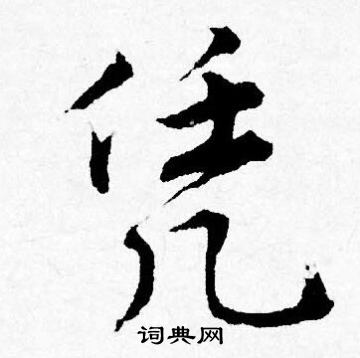 凭
词典网